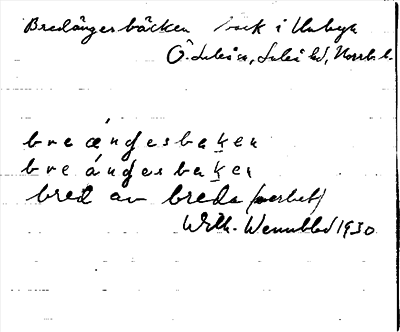 Bredängesbäcken bäck i Unbyn
Ö. Luleå sn, Luleå td, Norrb. l.
bre ængesbaken
bre ángesbaken
bred av breda (verbet)
Wilh. Wennblad 1930